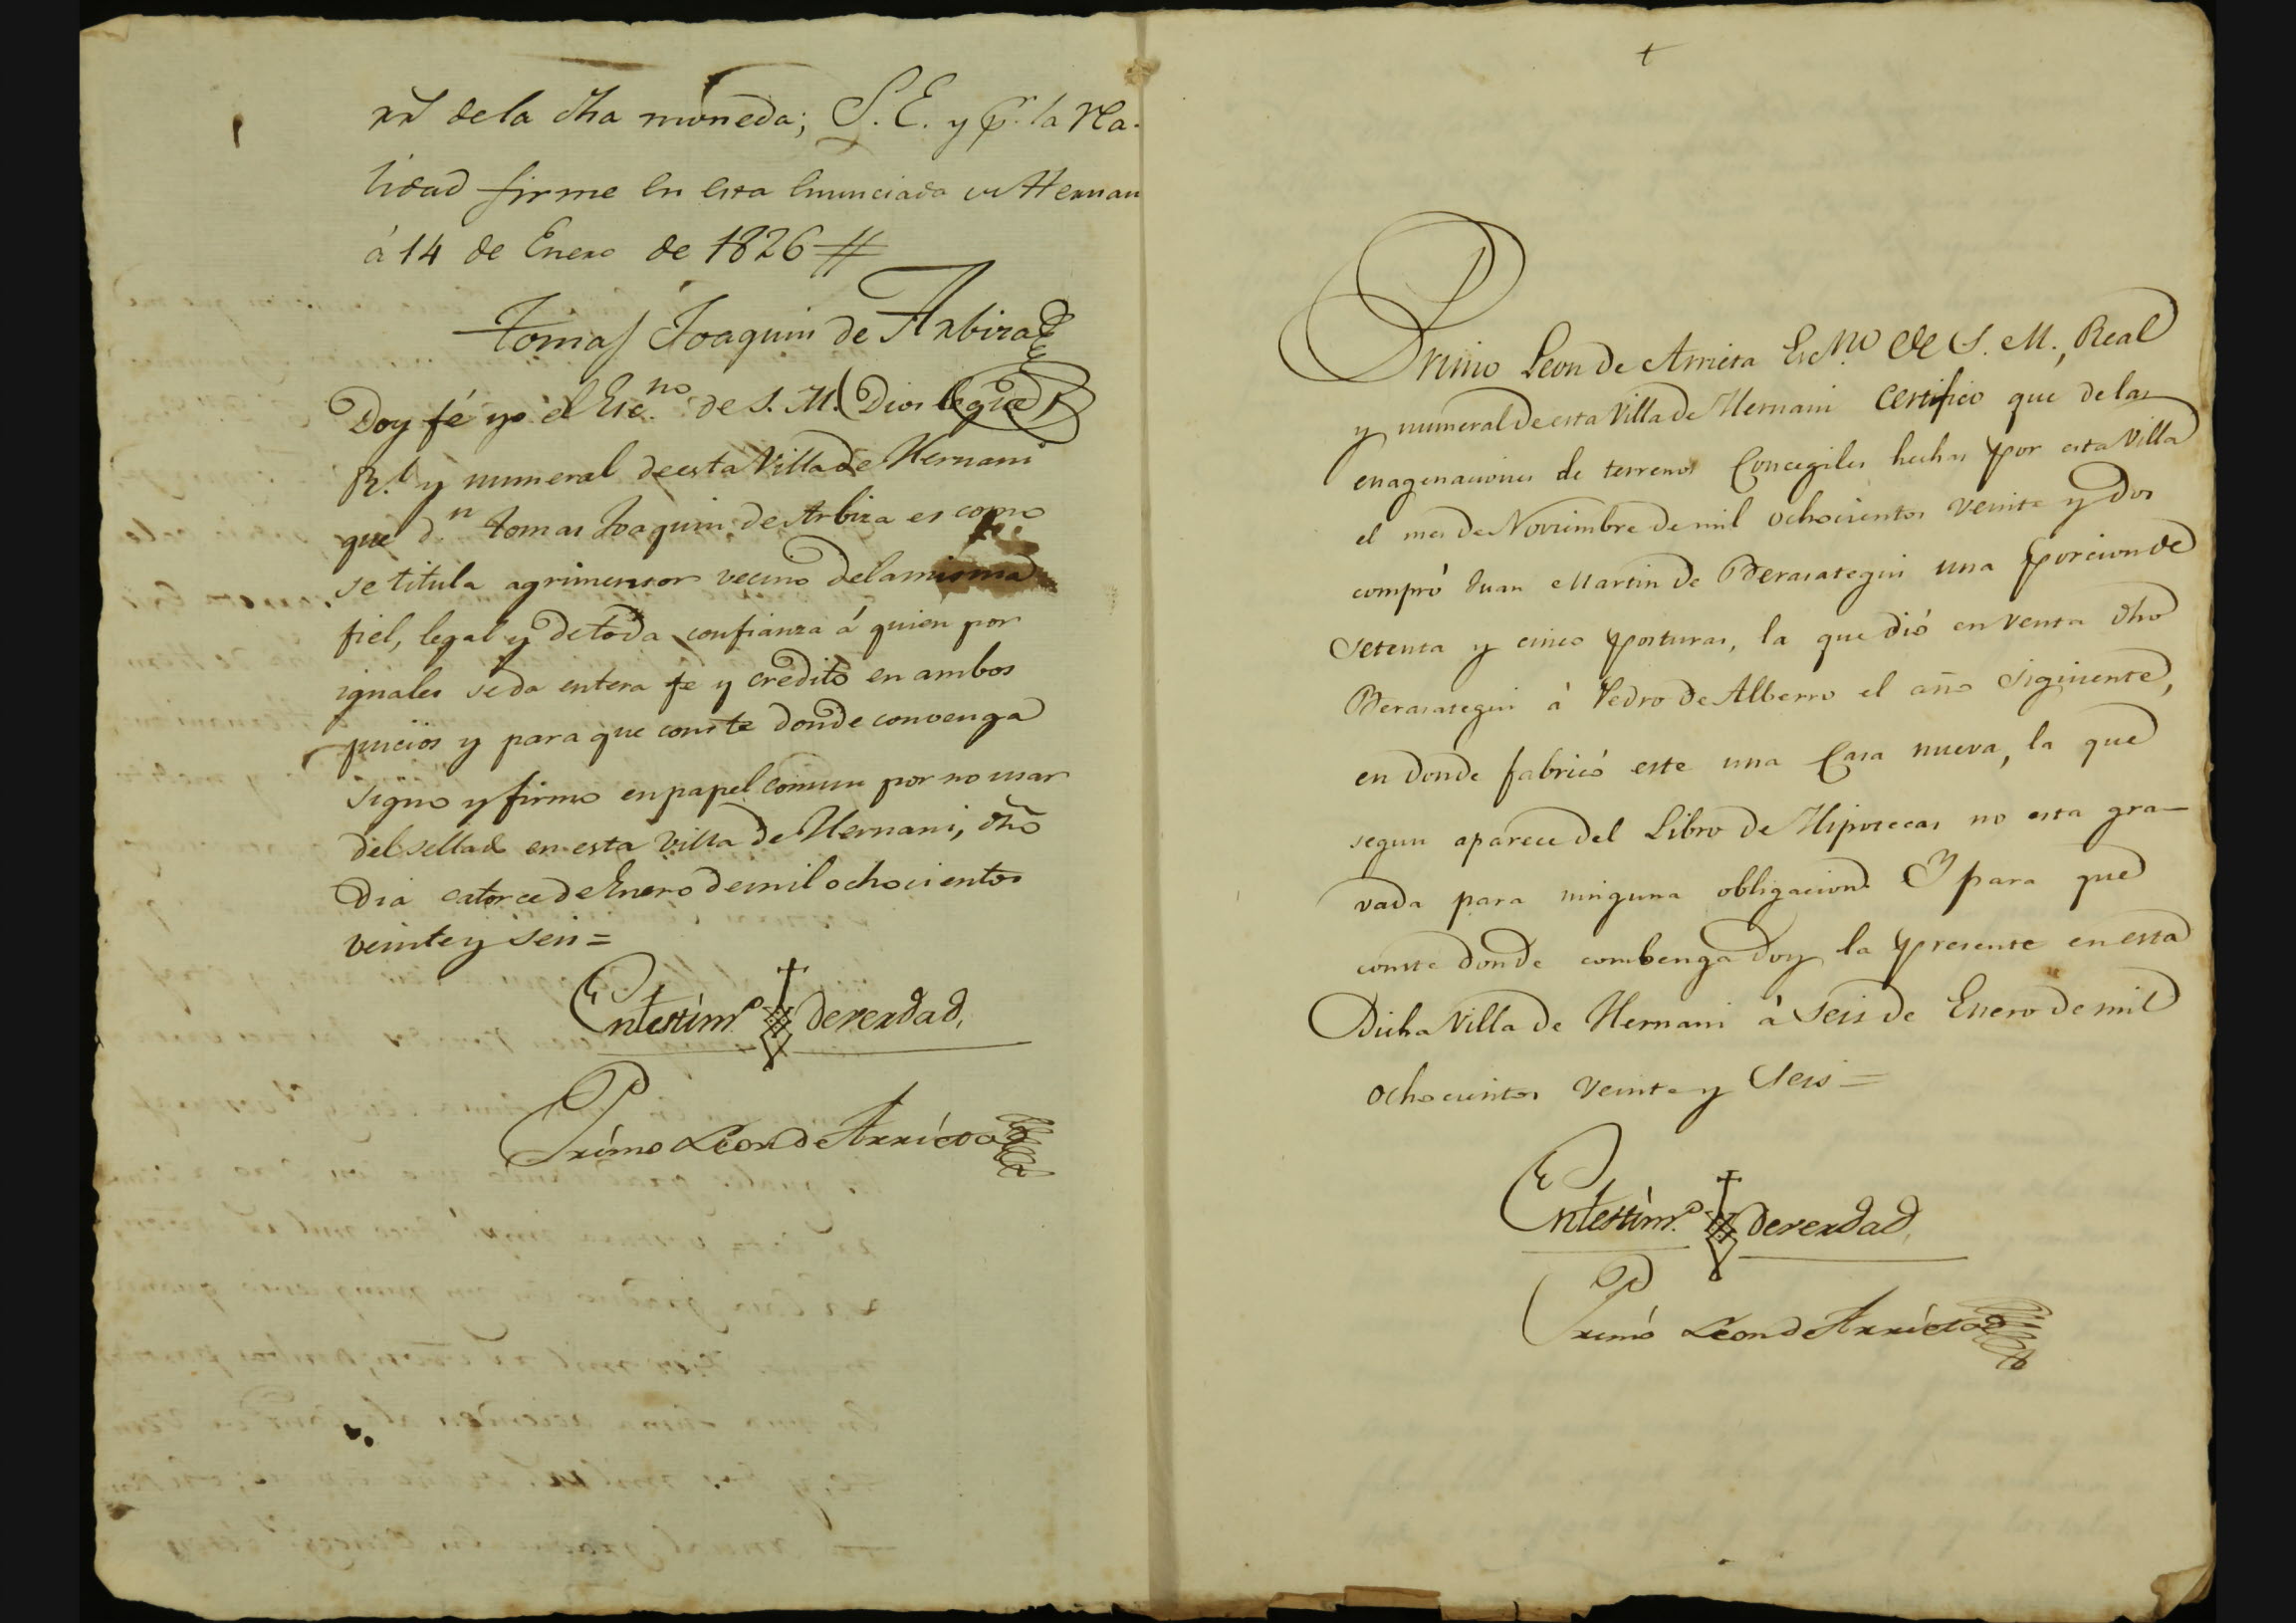 rs de la dha moneda; S. E. y pr. la rea-
lidad firme en esta enunciada va Hernan
á 14 de Enero de 1826 #
Tomas Joaquin de Arbiza
Doy fé yo el Esc.no de S. M. (Dios le gue)
R.l y numeral de esta Villa de Hernani
que d.n Tomas Joaquin de Arbiza es como
se titula agrimensor vecino de la misma
fiel, legal y de toda confianza á quien por
iguales se da entera fe y credito en ambos
juicios y para que conste donde convenga
signo y firmo en papel comun por no usar
del sellado en esta villa de Hernani, dho
dia catorce de Enero de mil ochocientos
veinte y seis =
En testim.o de verdad,
Primo Leon de Arrieta
Primo Leon de Arrieta Esc.no de S. M., Real
y numeral de esta Villa de Hernani Certifico que de las
enagenaciones de terrenos Concegiles hechas por esta Villa
el mes de Noviembre de mil ochocientos veinte y dos
compró Juan Martin de Berasategui una porcion de
setenta y cinco posturas, la que dió en venta dho
Berasategui á Pedro de Alberro el año siguiente,
en donde fabricó este una Casa nueva, la que
segun aparece del Libro de Hipotecas no esta gra-
vada para ninguna obligacion. Y para que
conste donde combenga doy la presente en esta
Dicha Villa de Hernani á seis de Enero de mil
ochocientos veinte y seis =
En testim.o de verdad,
Primo Leon de Arrieta